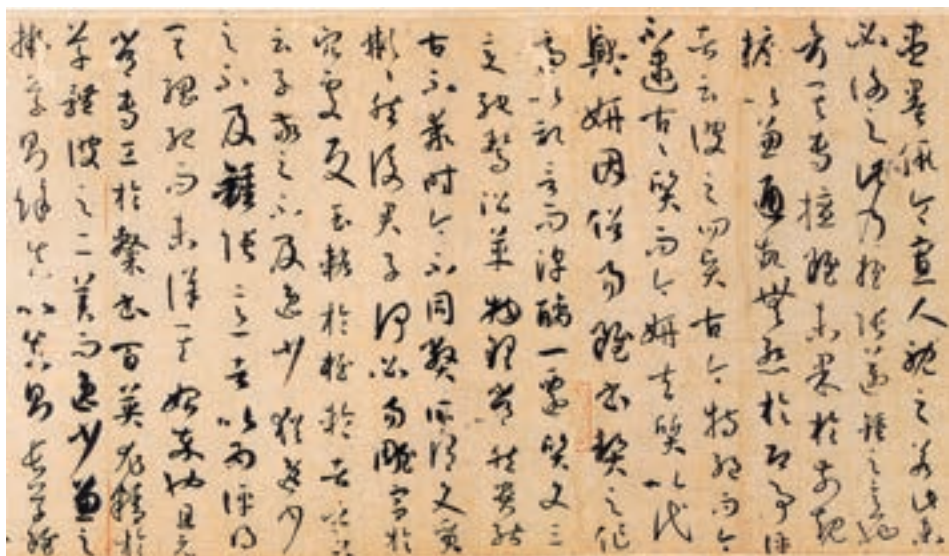 盡墨假令寡人耽之若此未
必謝之此乃推張邁鍾之意也
考其專擅雖未果於前規
摭以兼通故無慚於即事評
者云彼之四賢古今特絕而今
不逮古〻質而今妍夫質以代
興妍因俗易雖書契之作
適以記言而淳醨一遷質文三
變馳騖沿革物理常然貴能
古不乖時今不同弊所謂文質
彬〻然後君子何必易雕宮於
穴處反玉輅於椎輪者乎又
云子敬之不及逸少猶逸少
之不及鍾張意者以為評得
其綱紀而未詳其始卒也且元
常專工於隸書百英尤精於
草體彼之二美而逸少兼之
擬草則餘真比真則長草雖